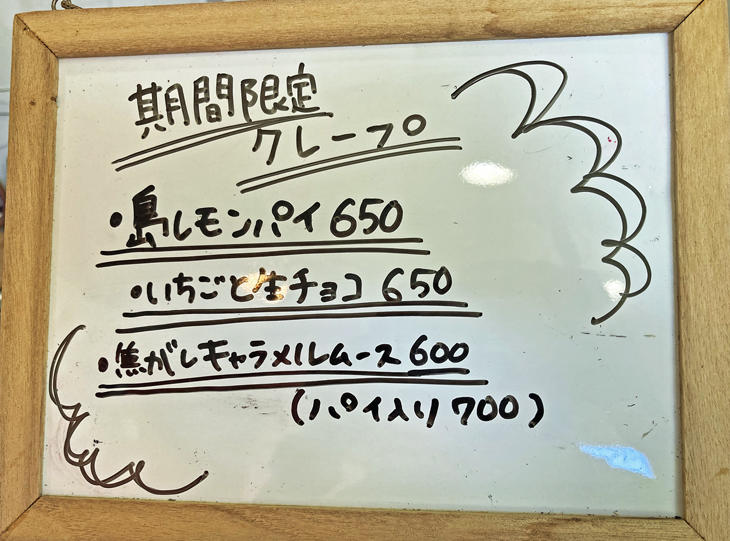 期間限定
クレープ
・島レモンパイ 650
・いちごと生チョコ 650
・焦がしキャラメルムース 600
(パイ入り 700)